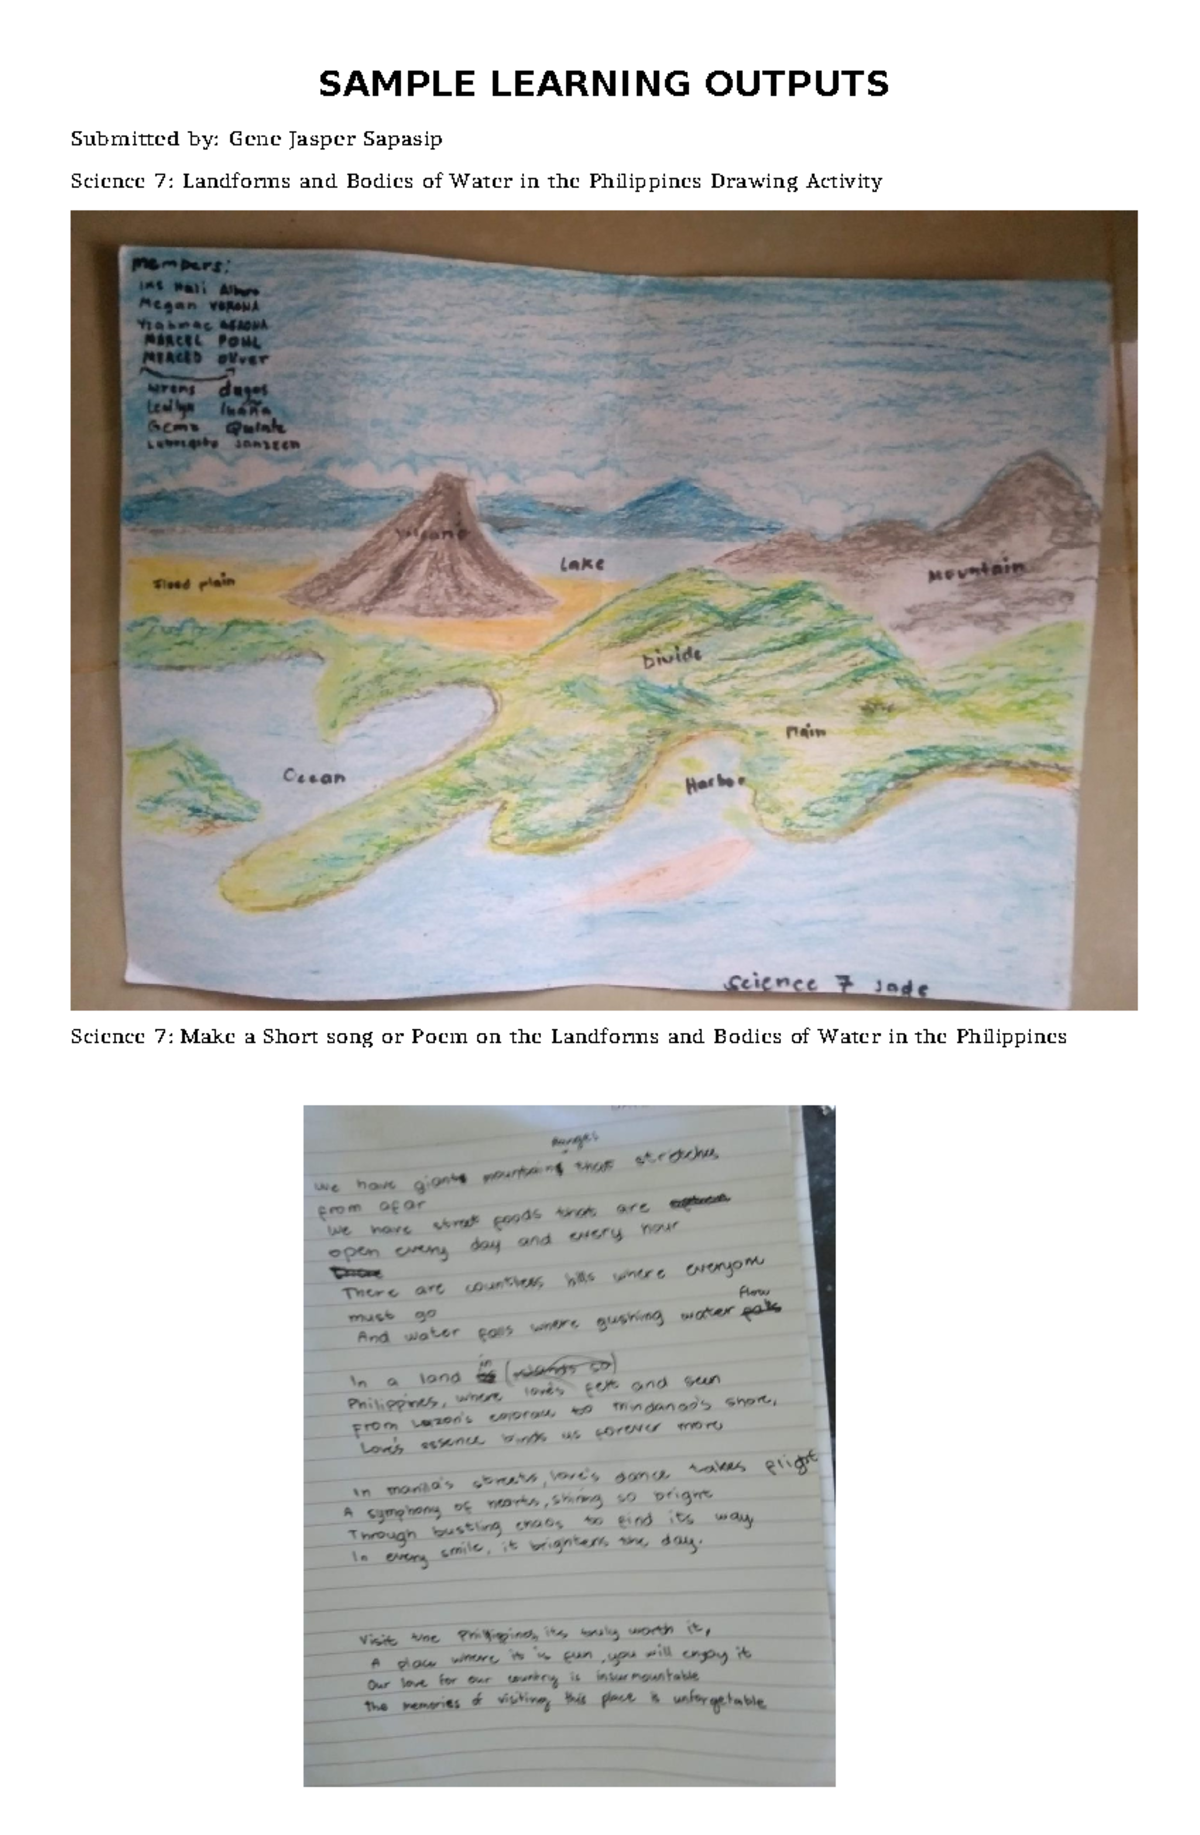 SAMPLE LEARNING OUTPUTS
Submitted by: Gene Jasper Sapasip
Science 7: Landforms and Bodies of Water in the Philippines Drawing Activity
members:
Megan VERONA
MARCEL POHL
MERCED
dagos
Gema
Janseen
Volcano
Lake
Flood plain
Mountain
Divide
Plain
Ocean
Harbor
Science 7 Jade
Science 7: Make a Short song or Poem on the Landforms and Bodies of Water in the Philippines
Ranges
We have giant mountain that stretches
from afar
We have street foods that are
open every day and every hour
There are countless hills where everyone
must go
flow
And water falls where gushing water falls
In a land in
Philippines, where love's felt and seen
From Luzon's embrace to mindanao's shore,
Love's essence binds us forever more
In manila's streets, love's dance takes flight
A symphony of hearts, shining so bright
Through bustling chaos to find its way
In every smile, it brightens the day.
Visit the Philippines, its truly worth it,
A place where it is fun, you will enjoy it
Our love for our country is insurmountable
The memories of visiting this place is unforgetable